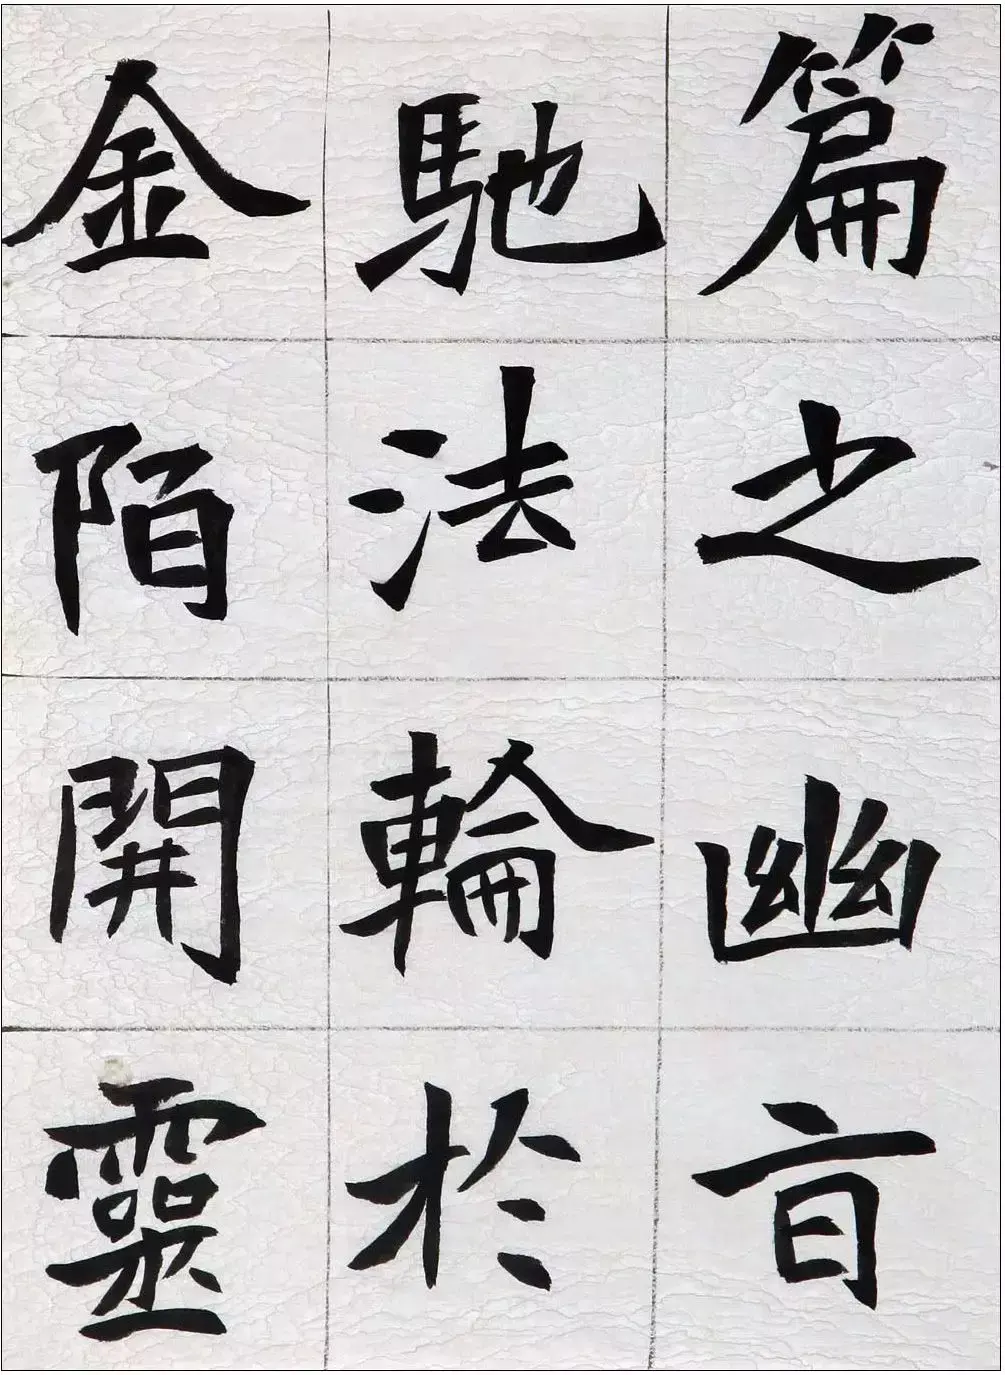 篇之幽旨
馳法輪於
金陌開靈